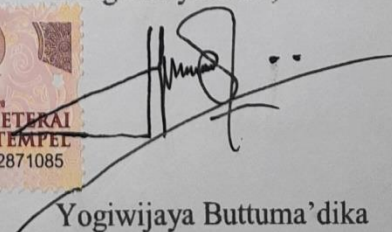 ETERAI
TEMPEL
2871085
Yogiwijaya Buttuma'dika